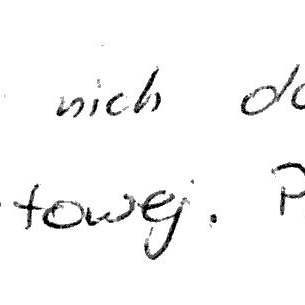 nich do
towej. P